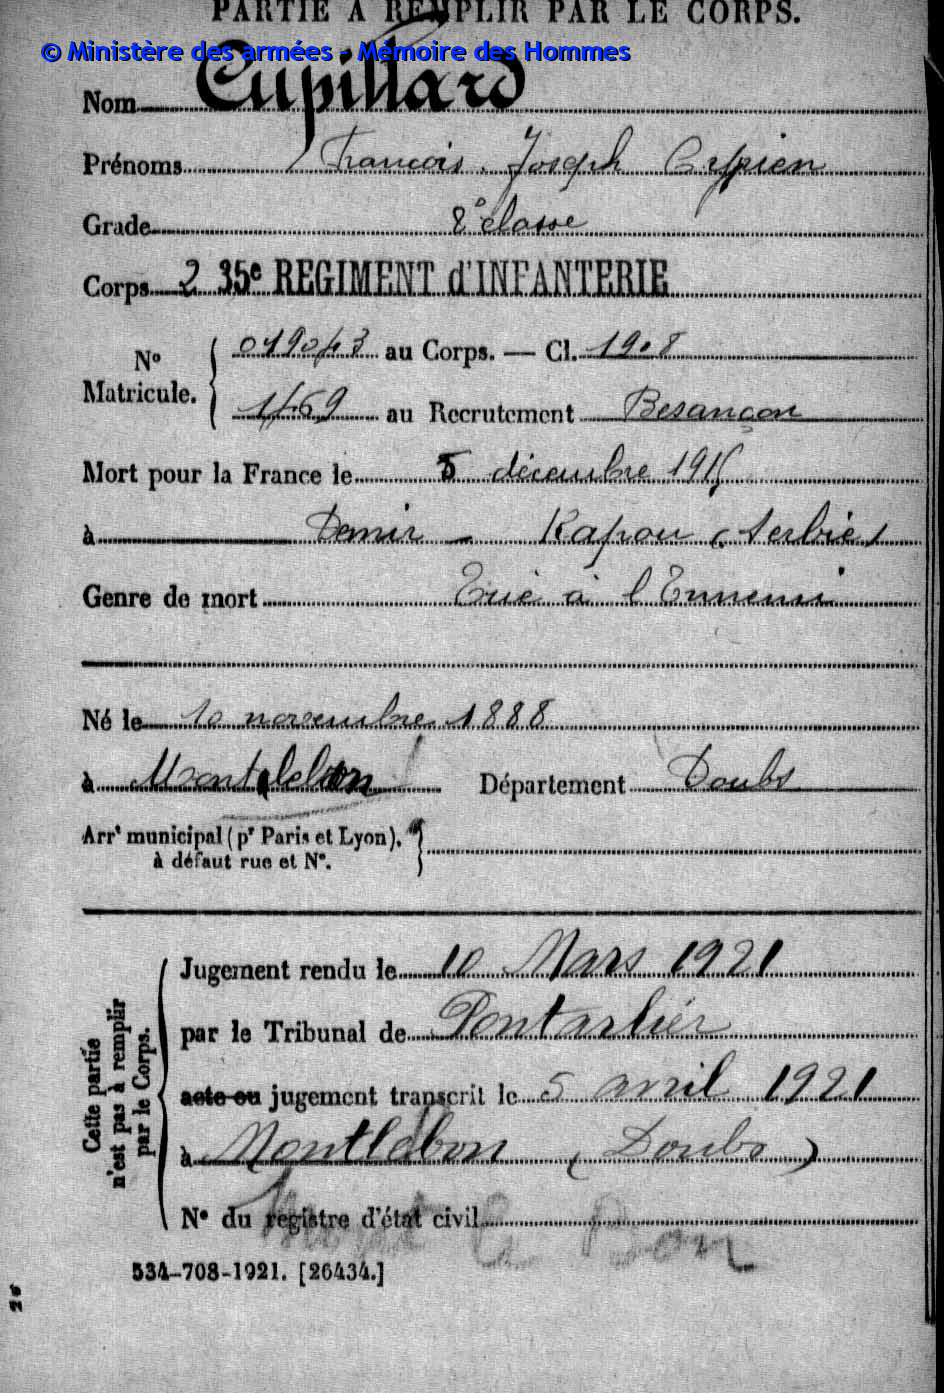 PARTIE A REMPLIR PAR LE CORPS.
© Ministère des armées - Mémoire des Hommes
Nom Cupillard
Prénoms François Joseph Cyprien
Grade 2e classe
Corps 2 35e REGIMENT d'INFANTERIE
N° Matricule. { 019043 au Corps. — Cl. 1908
1469 au Recrutement Besançon
Mort pour la France le 5 décembre 1915
à Demir - Kapou (Serbie)
Genre de mort Tué à l'Ennemi
Né le 10 novembre 1888
à Montlebon Département Doubs
Arrt municipal (pr Paris et Lyon),
à défaut rue et N°.
Cette partie n'est pas à remplir par le Corps.
Jugement rendu le 10 Mars 1921
par le Tribunal de Pontarlier
acte ou jugement transcrit le 5 avril 1921
à Montlebon (Doubs)
N° du registre d'état civil
Mont le Bon
534-708-1921. [26434.]